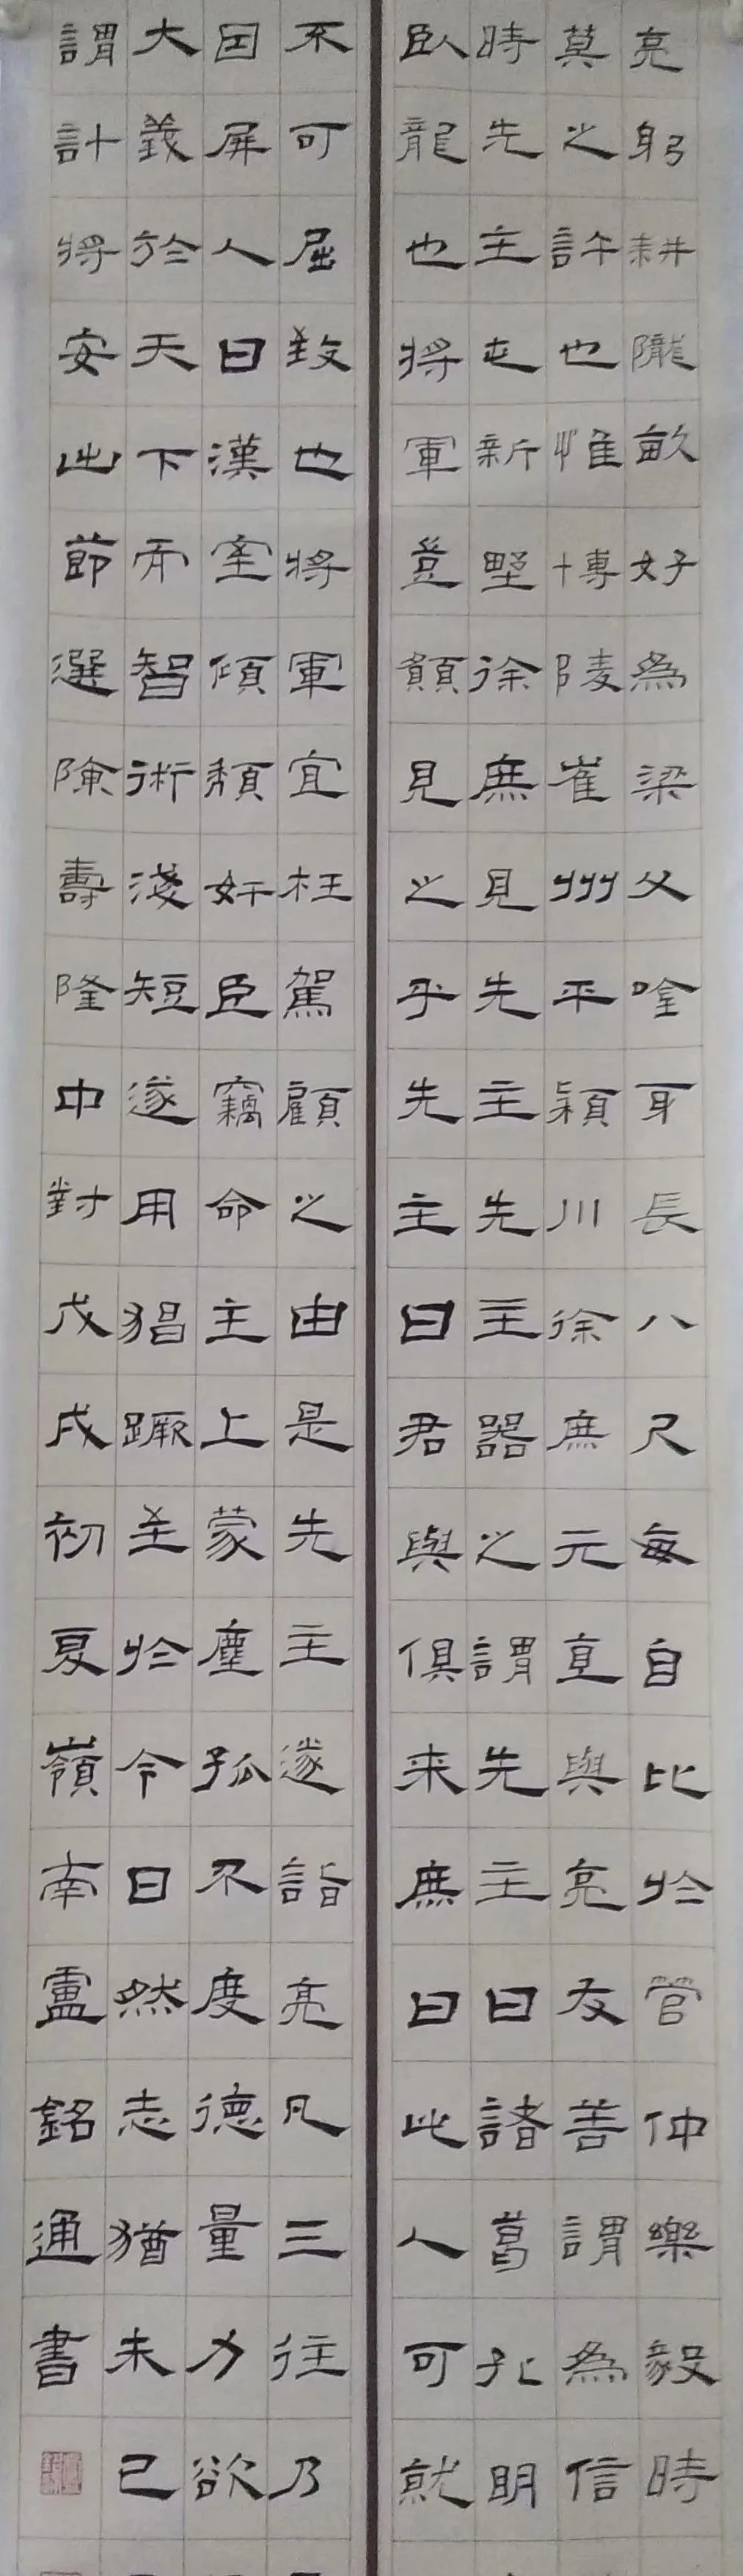 亮躬耕隴畝好為梁父唫耳長八尺每自比於管仲樂毅時
莫之許也惟博陵崔州平潁川徐庶元直與亮友善謂為信
時先主屯新野徐庶見先主先主器之謂先主曰諸葛孔明
臥龍也將軍豈願見之乎先主曰君與俱来庶曰此人可就
不可屈致也將軍宜枉駕顧之由是先主遂詣亮凡三往乃
因屏人曰漢室傾頹奸臣竊命主上蒙塵孤不度德量力欲
大義於天下而智術淺短遂用猖蹶至於今日然志猶未已
謂計將安出節選陳壽隆中對戊戌初夏嶺南盧銘通書